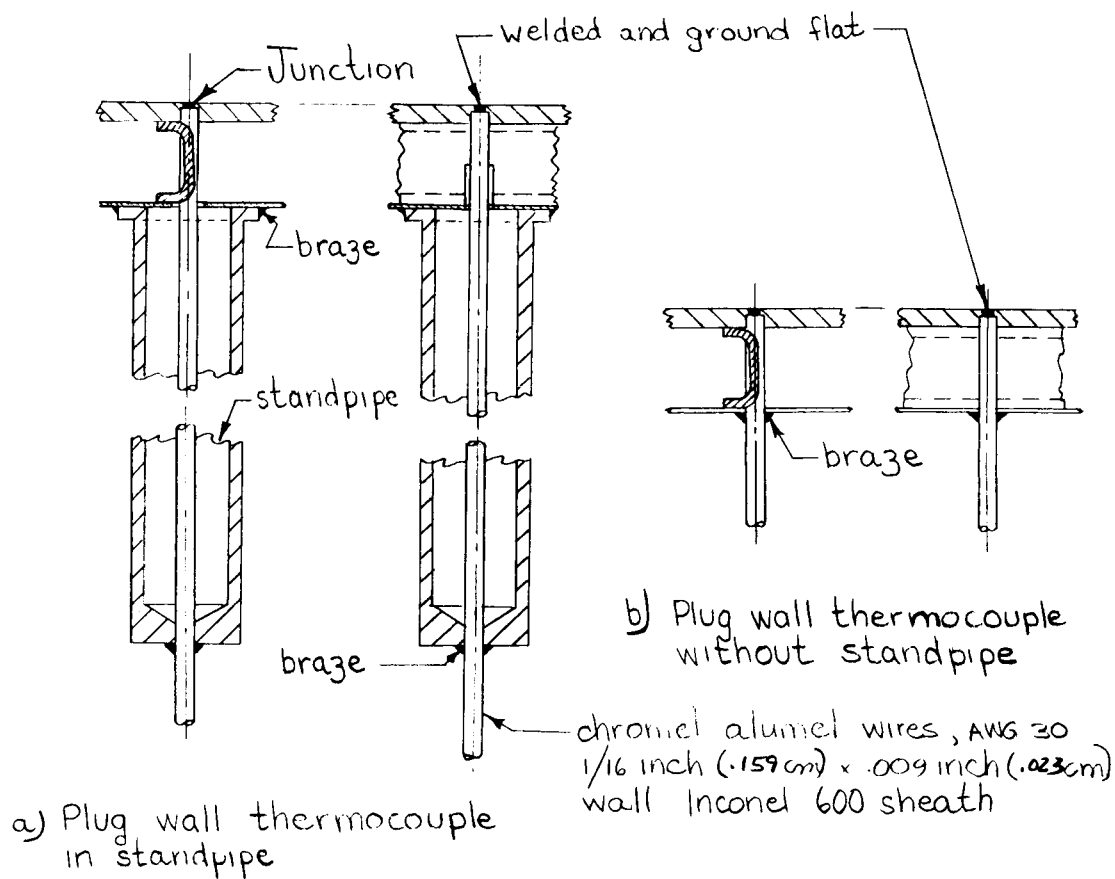 welded and ground flat
Junction
braze
standpipe
braze
braze
b) Plug wall thermocouple
without standpipe
chromel alumel wires, AWG 30
1/16 inch (.159 cm) x .009 inch (.023 cm)
wall Inconel 600 sheath
a) Plug wall thermocouple
in standpipe